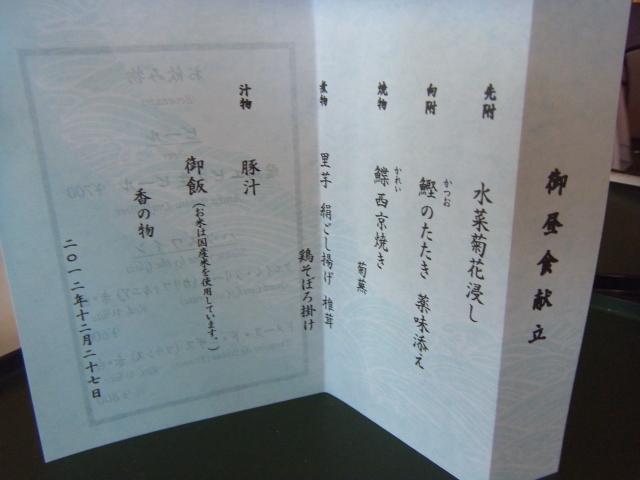 御昼食献立
先附
水菜菊花浸し
向附
かつお
鰹のたたき 薬味添え
焼物
かれい
鰈西京焼き
菊蕪
煮物
里芋 絹ごし揚げ 椎茸
鶏そぼろ掛け
汁物
豚汁
御飯(お米は国産米を使用しています。)
香の物
二〇一二年十二月二十七日
お飲み物